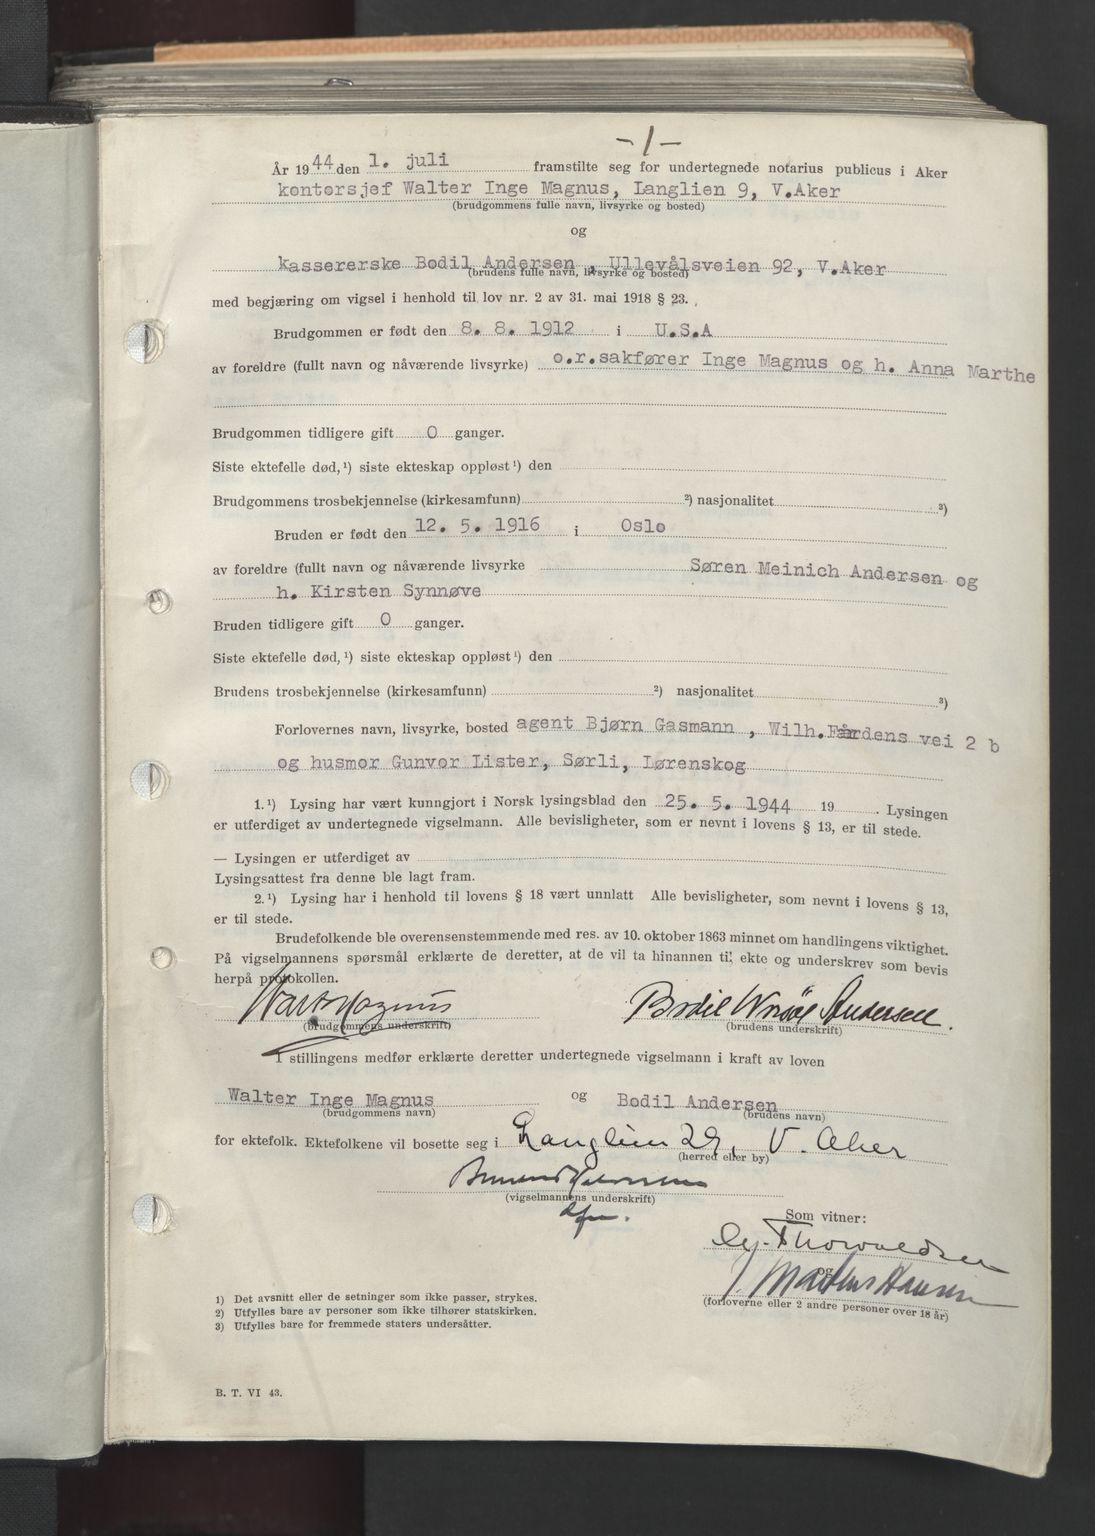 - 1 -
År 1944 den 1. juli framstilte seg for undertegnede notarius publicus i Aker
kontorsjef Walter Inge Magnus, Langlien 9, V.Aker
(brudgommens fulle navn, livsyrke og bosted)
og
kassererske Bodil Andersen , Ullevålsveien 92, V.Aker
(brudens fulle navn, livsyrke og bosted)
med begjæring om vigsel i henhold til lov nr. 2 av 31. mai 1918 § 23.
Brudgommen er født den 8. 8. 1912 i U.S.A
av foreldre (fullt navn og nåværende livsyrke) o.r.sakfører Inge Magnus og h. Anna Marthe
Brudgommen tidligere gift 0 ganger.
Siste ektefelle død,¹) siste ekteskap oppløst¹) den
Brudgommens trosbekjennelse (kirkesamfunn) ²) nasjonalitet ³)
Bruden er født den 12. 5. 1916 i Oslo
av foreldre (fullt navn og nåværende livsyrke Søren Meinich Andersen og
h. Kirsten Synnøve
Bruden tidligere gift 0 ganger.
Siste ektefelle død,¹) siste ekteskap oppløst¹) den
Brudens trosbekjennelse (kirkesamfunn) ²) nasjonalitet ³)
Forlovernes navn, livsyrke, bosted agent Bjørn Gasmann , Wilh. vei 2 b
og husmor Gunvor Lister, Sørli, Lørenskog
1.¹) Lysing har vært kunngjort i Norsk lysingsblad den 25. 5. 1944 19 . Lysingen
er utferdiget av undertegnede vigselmann. Alle bevisligheter, som er nevnt i lovens § 13, er til stede.
— Lysingen er utferdiget av
Lysingsattest fra denne ble lagt fram.
2.¹) Lysing har i henhold til lovens § 18 vært unnlatt Alle bevisligheter, som nevnt i lovens § 13,
er til stede.
Brudefolkende ble overensenstemmende med res. av 10. oktober 1863 minnet om handlingens viktighet.
På vigselmannens spørsmål erklærte de deretter, at de vil ta hinannen til ekte og underskrev som bevis
herpå protokollen.
Magnus Bodil Andersen.
(brudgommens underskrift) (brudens underskrift)
I stillingens medfør erklærte deretter undertegnede vigselmann i kraft av loven
Walter Inge Magnus og Bodil Andersen
(brudgommens navn) (brudens navn)
for ektefolk. Ektefolkene vil bosette seg i Langlien 29, V. Aker
(herred eller by)
(vigselmannens underskrift)
Som vitner:
Thorvaldsen
og
Hansen
(forloverne eller 2 andre personer over 18 år)
1) Det avsnitt eller de setninger som ikke passer, strykes.
2) Utfylles bare av personer som ikke tilhører statskirken.
3) Utfylles bare for fremmede staters undersåtter.
B. T. VI 43.